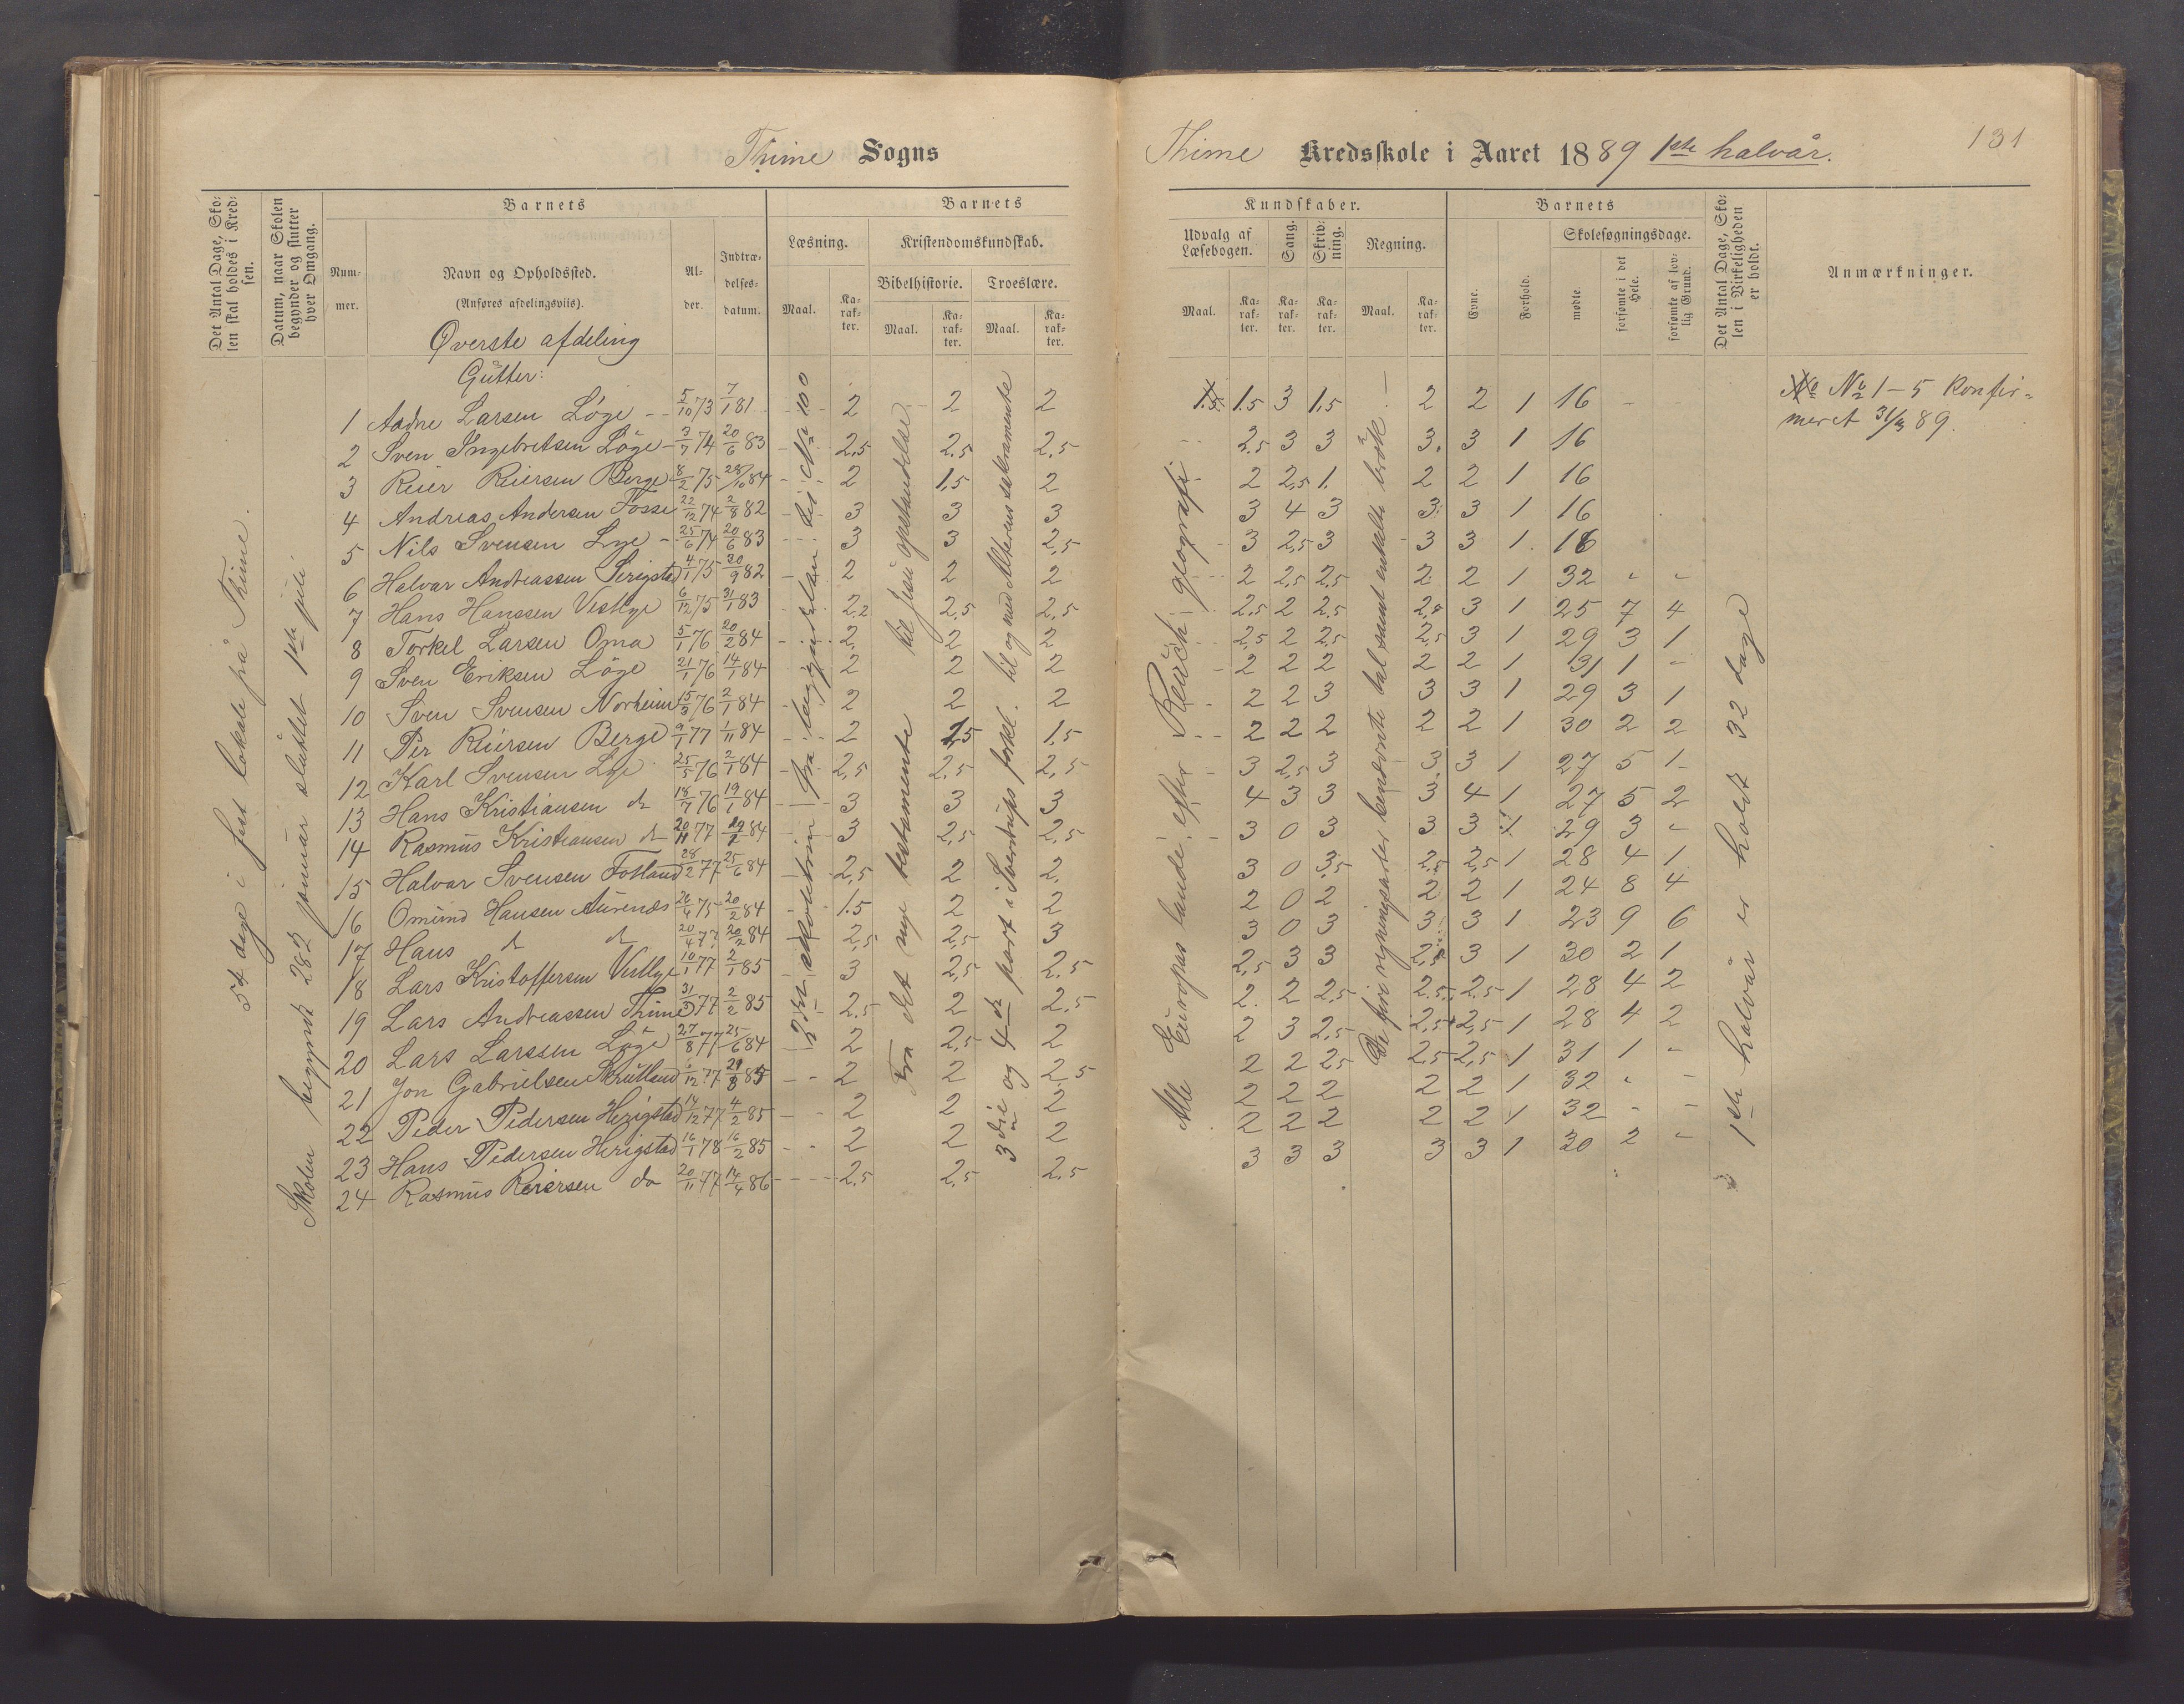 Thime Sogns
Det Antal Dage, Skolen skal holdes i Kredsen.
Datum, naar Skolen begynder og slutter hver Omgang.
Barnets
Nummer.
Navn og Opholdssted.
(Anføres afdelingsviis).
Alder.
Indtrædelsesdatum.
Barnets
Læsning.
Maal.
Karakter.
Kristendomskundskab.
Bibelhistorie.
Maal.
Karakter.
Troeslære.
Maal.
Karakter.
54 dage i fast lokale på Thime.
Skolen begyndt 2den januar sluttet 1ste juli
Øverste afdeling
Gutter:
1 Aadne Larsen Löge 5/10 73 7/1 81 2 2 2
2 Sven Ingebretsen Löge 3/7 74 20/6 83 2,5 2,5 2,5
3 Reier Reiersen Berge 8/2 75 28/10 84 2 1,5 2
4 Andreas Andersen Fosse 22/12 74 2/8 82 3 3 3
5 Nils Svensen Lye 25/6 74 20/6 83 3 3 2,5
6 Halvar Andreassen Serigstad 4/1 75 30/9 82 2 2 2
7 Hans Hanssen Vestlye 6/12 75 31/1 83 2,2 2,5 2,5
8 Torkel Larsen Oma 5/1 76 20/2 84 2 2 2
9 Sven Eriksen Löge 21/1 76 14/1 84 2 2 2
10 Sven Svensen Norheim 15/3 76 2/1 84 2 2 2
11 Per Reiersen Berge 9/1 77 1/11 84 2 1,5 1,5
12 Karl Svensen Lye 25/5 76 2/1 84 2,5 2,5 2,5
13 Hans Kristiansen do 18/7 76 19/1 84 3 3 3
14 Rasmus Kristiansen do 20/11 77 84 3 2,5 2,5
15 Halvar Svensen Fotland 28/2 77 25/6 84 2,5 2 2
16 Omund Hansen Aurenes 26/4 75 20/2 84 1.5 2 2
17 Hans do do 20/4 77 20/2 84 2,5 2,5 3
18 Lars Kristoffersen Vestlye 10/1 77 2/1 85 3 2,5 2,5
19 Lars Andreassen Thime 31/3 77 2/2 85 2,5 2 2,5
20 Lars Larssen Löge 27/8 77 25/6 84 2 2,5 2
21 Jon Gabrielsen Skrutland 6/12 77 85 2 2 2,5
22 Peder Pedersen Herigstad 14/12 77 4/2 85 2 2 2
23 Hans Pedersen Herigstad 16/1 78 16/2 85 2 2 2
24 Rasmus Reiersen do 20/11 77 14/4 86 2,5 2,5 2,5
2det skoletrin fra begyndelsen til No 100
Fra det nye testamente til Jesu opstandelse
3die og 4de part i Sverdrups forkl. til og med Alterens sakramente
Thime Kredsskole i Aaret 1889 1ste halvår.
131
Kundskaber.
Udvalg af Læsebogen.
Maal.
Karakter.
Sang.
Karakter.
Skrivning.
Karakter.
Regning.
Maal.
Karakter.
Barnets
Evne.
Forhold.
Skolesøgningsdage.
mødte.
forsømte i det Hele.
forsømte af lovlig Grund.
Det Antal Dage, Skolen i Virkeligheden er holdt.
Anmærkninger.
No 1-5 konfirmeret 31/3 89.
1.5 3 1,5 2 2 1 16
2,5 3 3 3 3 1 16
2 2,5 1 2 2 1 16
3 4 3 3 3 1 16
3 2,5 3 3 3 1 16
2 2,5 2,5 2 2 1 32 - -
2,5 2 2,5 2,5 3 1 25 7 4
2,5 2 2,5 2,5 3 1 29 3 1
2 2 2 2 2 1 31 1 -
2 2 3 3 3 1 29 3 1
2 2 2 2 2 1 30 2 2
3 2,5 3 3 3 1 27 5 1
4 3 3 3 4 1 27 5 2
3 0 3 3 3 1 29 3 -
3 0 3,5 2,5 2,5 1 28 4 1
2 0 2 2 2 1 24 8 4
3 0 3 3 3 1 23 9 6
2,5 3 3 2,5 3 1 30 2 1
2 2 2,5 2,5 2,5 1 28 4 2
2 3 2,5 2,5 2,5 1 28 4 2
2 2 2,5 2,5 2,5 1 31 1 -
2 2 2 2 2 1 32 - -
2 2 2 2 2 1 32 - -
3 3 3 3 3 1 30 2 -
Alle Europas lande efter Reusch geografi
De fire regningsarter benævnte tal samt enkelte brök.
1ste halvår er holdt 32 dage